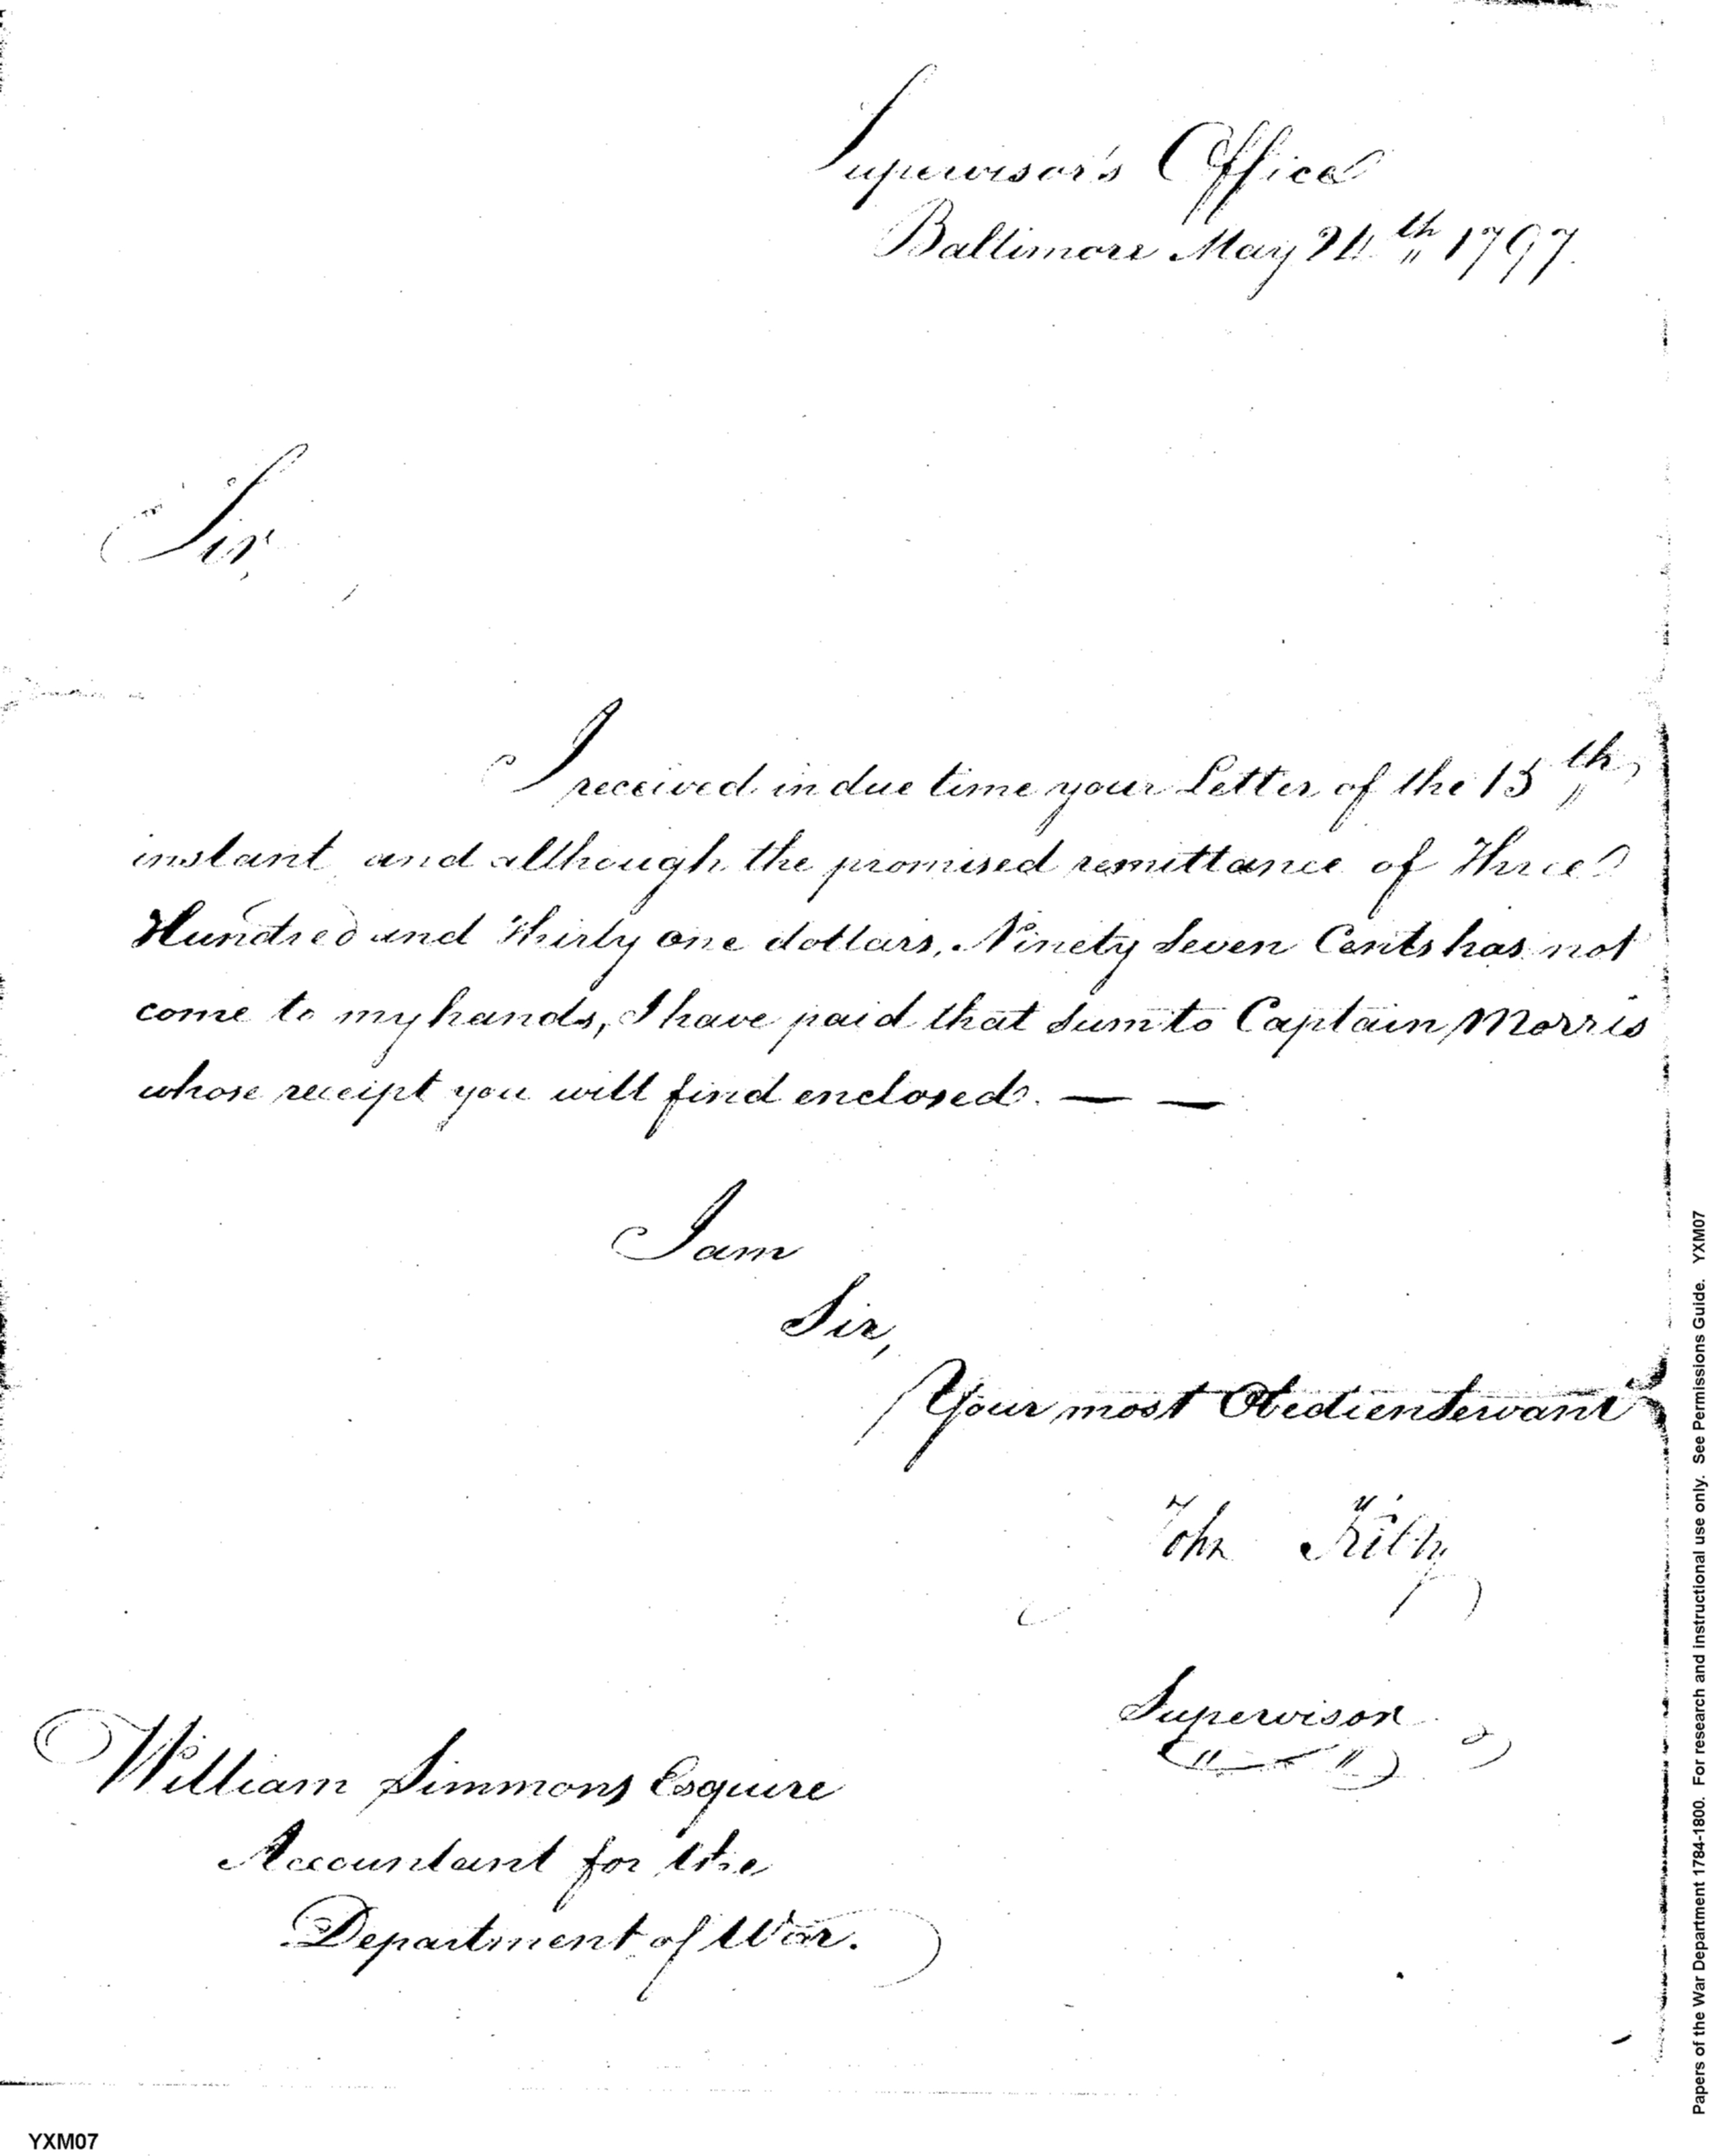 Supervisor's Office
Baltimore May 24th 1797.
Sir,
I received in due time your Letter of the 15th
instant and although the promised remittance of Three
Hundred and Thirty one dollars, Ninety Seven Cents has not
come to my hands, I have paid that sum to Captain Morris
whose receipt you will find enclosed. — —
I am
Sir,
Your most Obedient Servant
John Kilty
Supervisor
William Simmons Esquire
Accountant for the
Department of War.
Papers of the War Department 1784-1800. For research and instructional use only. See Permissions Guide. YXM07
YXM07